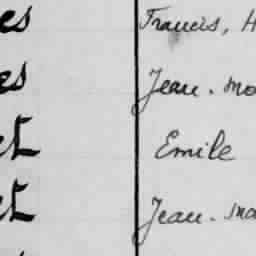 es Francis, H
es Jean. Ma
et Emile
et Jean. Ma